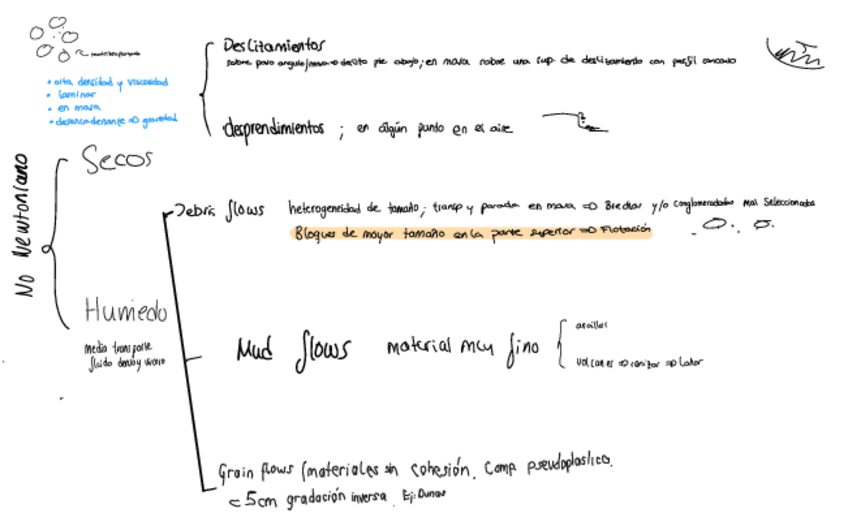 Deslitamientos
en masa sobre una sup de deslizamiento con perfil concavo
• alta densidad y viscosidad
• laminar
• en masa
• desencadenante => gravedad
desprendimientos ; en algún punto en el aire
No Newtoniano
Secos
Debris flows heterogeneidad de tamaño; transp y parada en masa => Brechas y/o conglomerados mal seleccionados
Bloques de mayor tamaño en la parte superior => Flotación
Humedo
medio transporte
fluido denso y
Mud flows material muy fino
arcillas
volcanes => cenizas => Lahar
Grain flows (materiales sin cohesión. Comp pseudoplastico.
< 5cm gradación inversa. Ej: Dunas